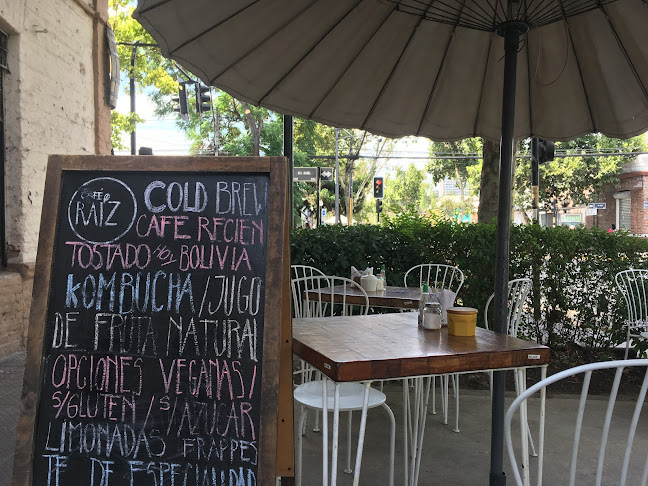 CAFÉ
RAÍZ
COLD BREW
CAFE RECIEN
TOSTADO HOY BOLIVIA
KOMBUCHA/JUGO
DE FRUTA NATURAL
OPCIONES VEGANAS/
S/GLUTEN/S/AZUCAR
LIMONADAS FRAPPES
TE DE ESPECIALIDAD